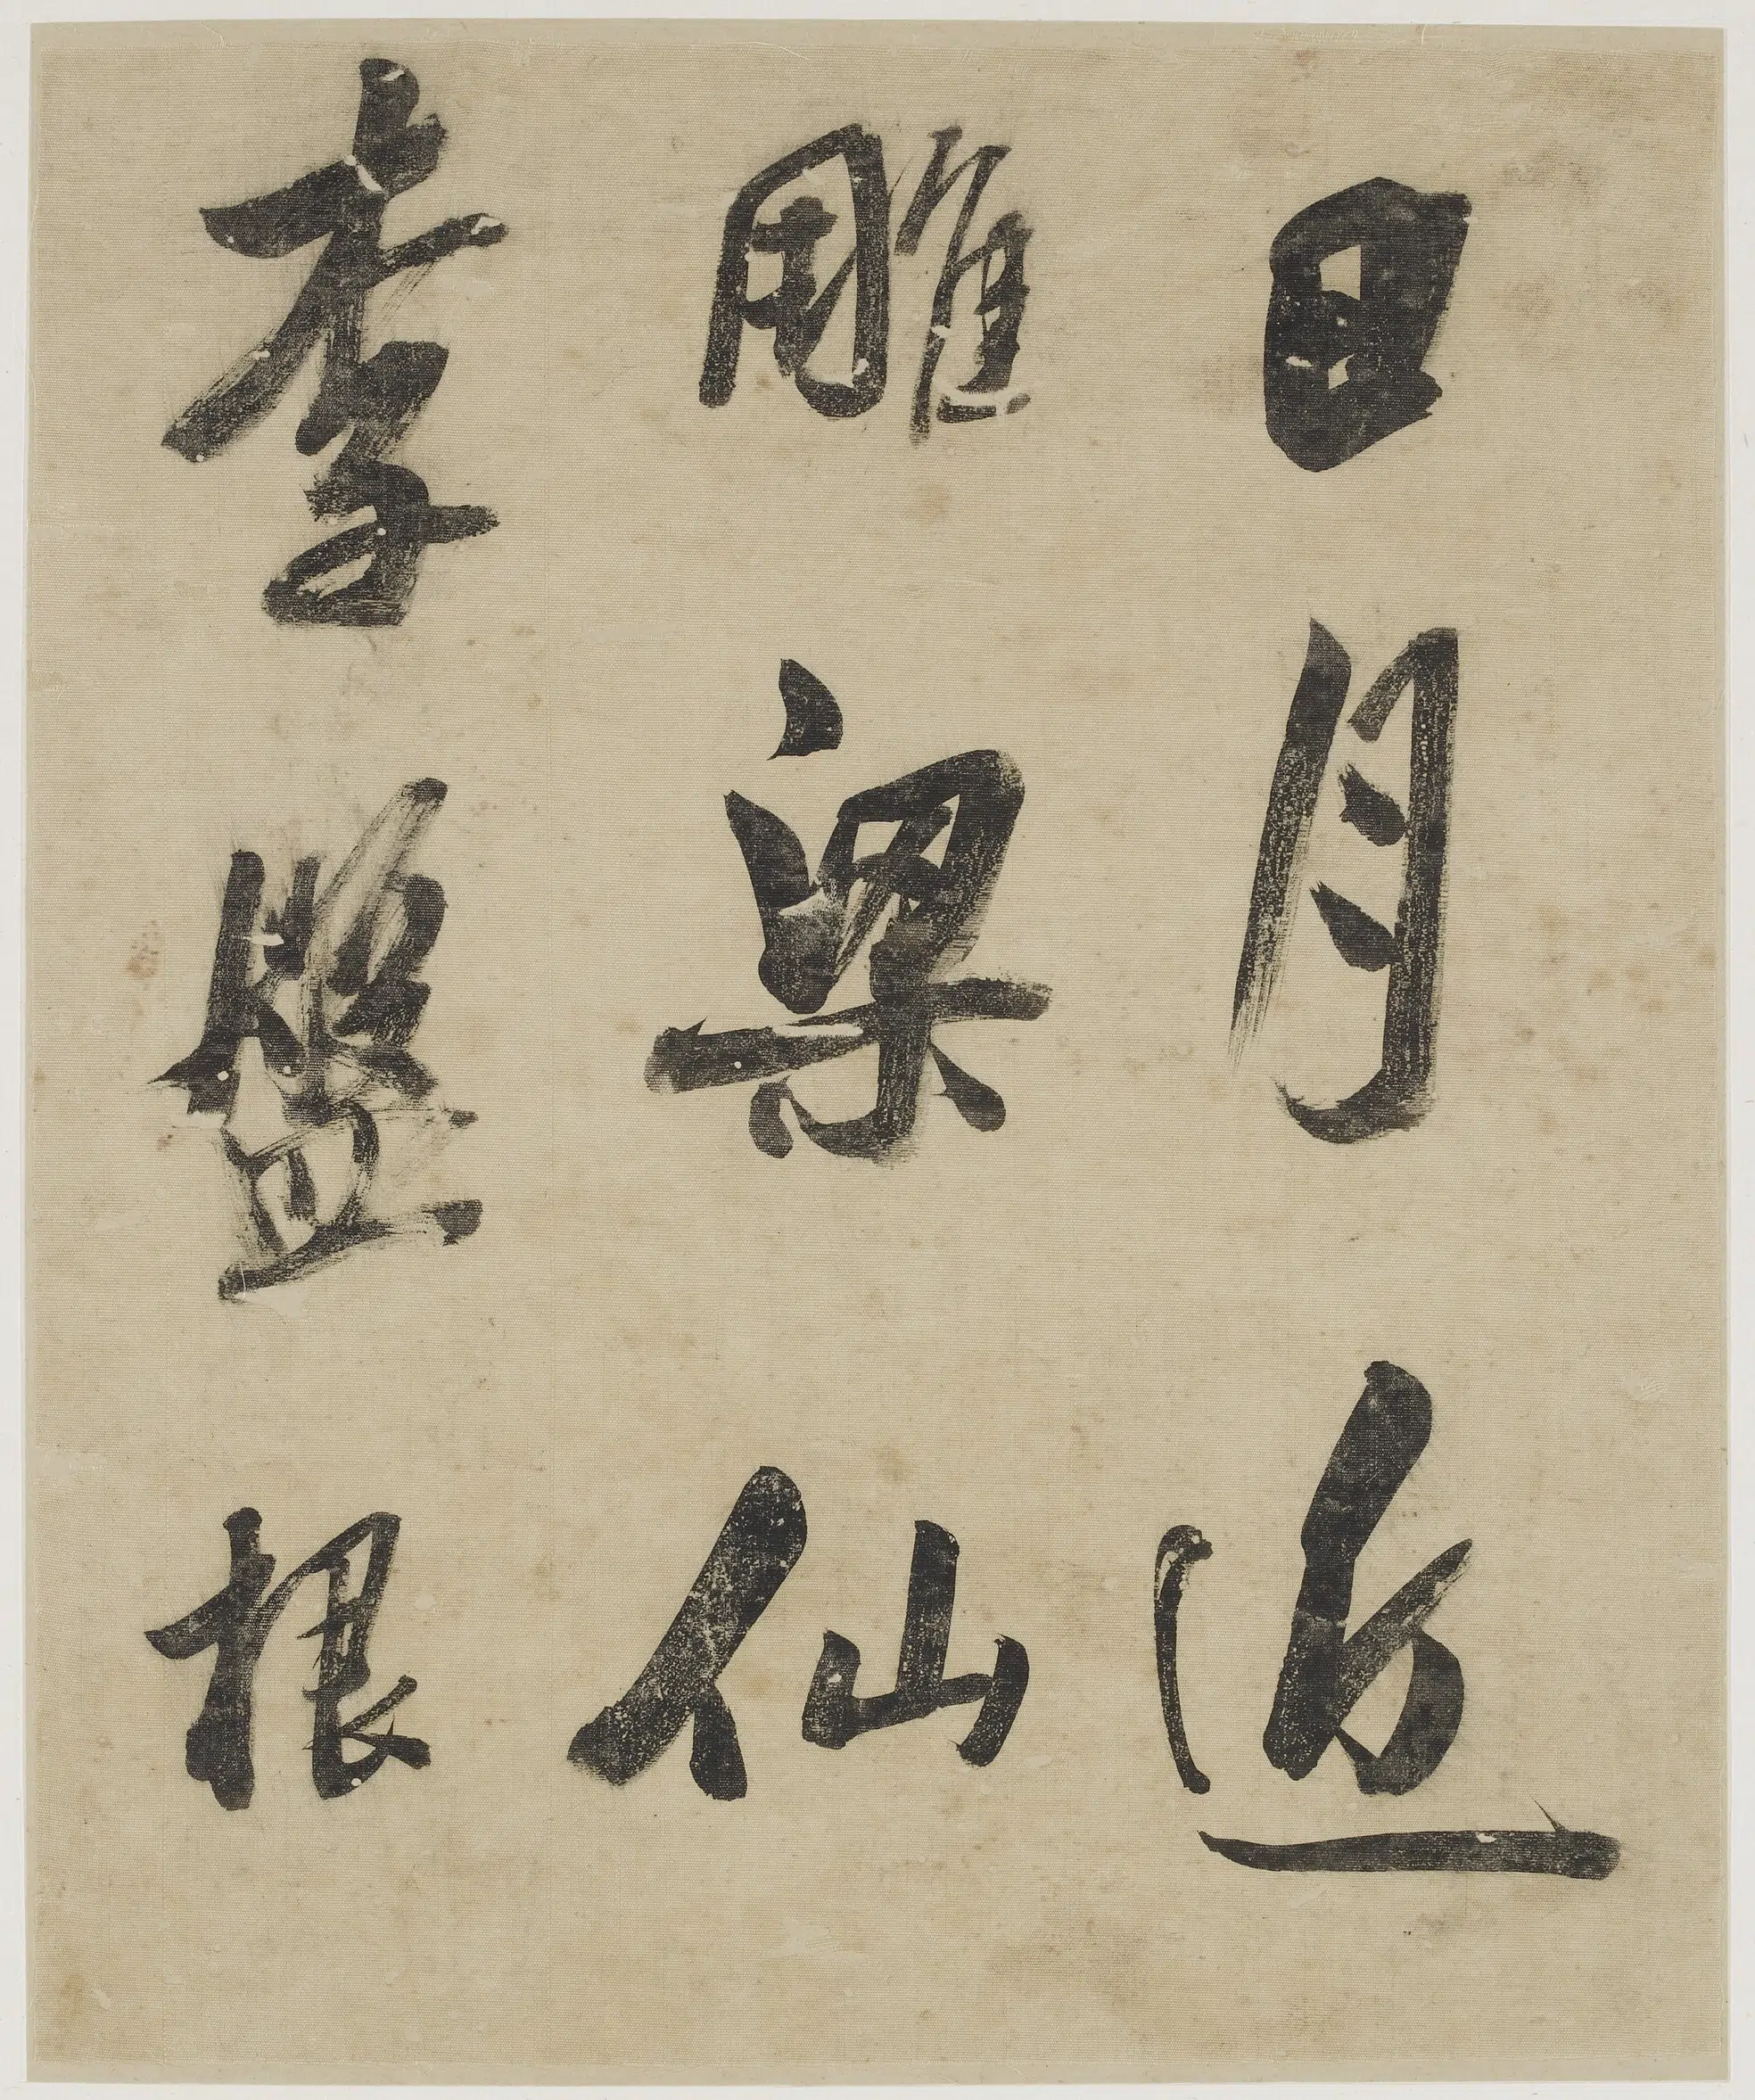 日月近
雕梁仙
李盤根